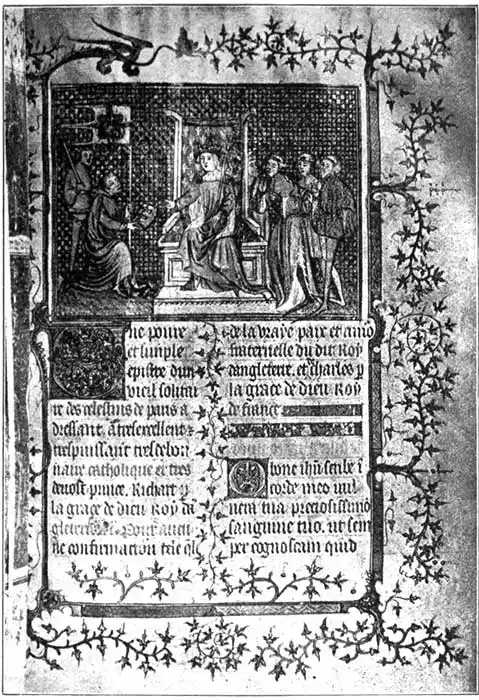 ne poure
et simple
epistre dun
vieil solitai
re des celestins de paris a
dressant a tresexcellent
trespuissant tresdebon
naire catholique et tres
devost prince Richart p
la grace de dieu Roy da
gleterre Pour aucu
ne confirmacion tele qle
de la vraye paix et amo
fraternelle du dit Roy
dangleterre, et charles p
la grace de dieu Roy
de france
bone ihu scribe i
corde meo vul
nera tua preciosissimo
sanguine tuo, ut sem
per cognoscam quid